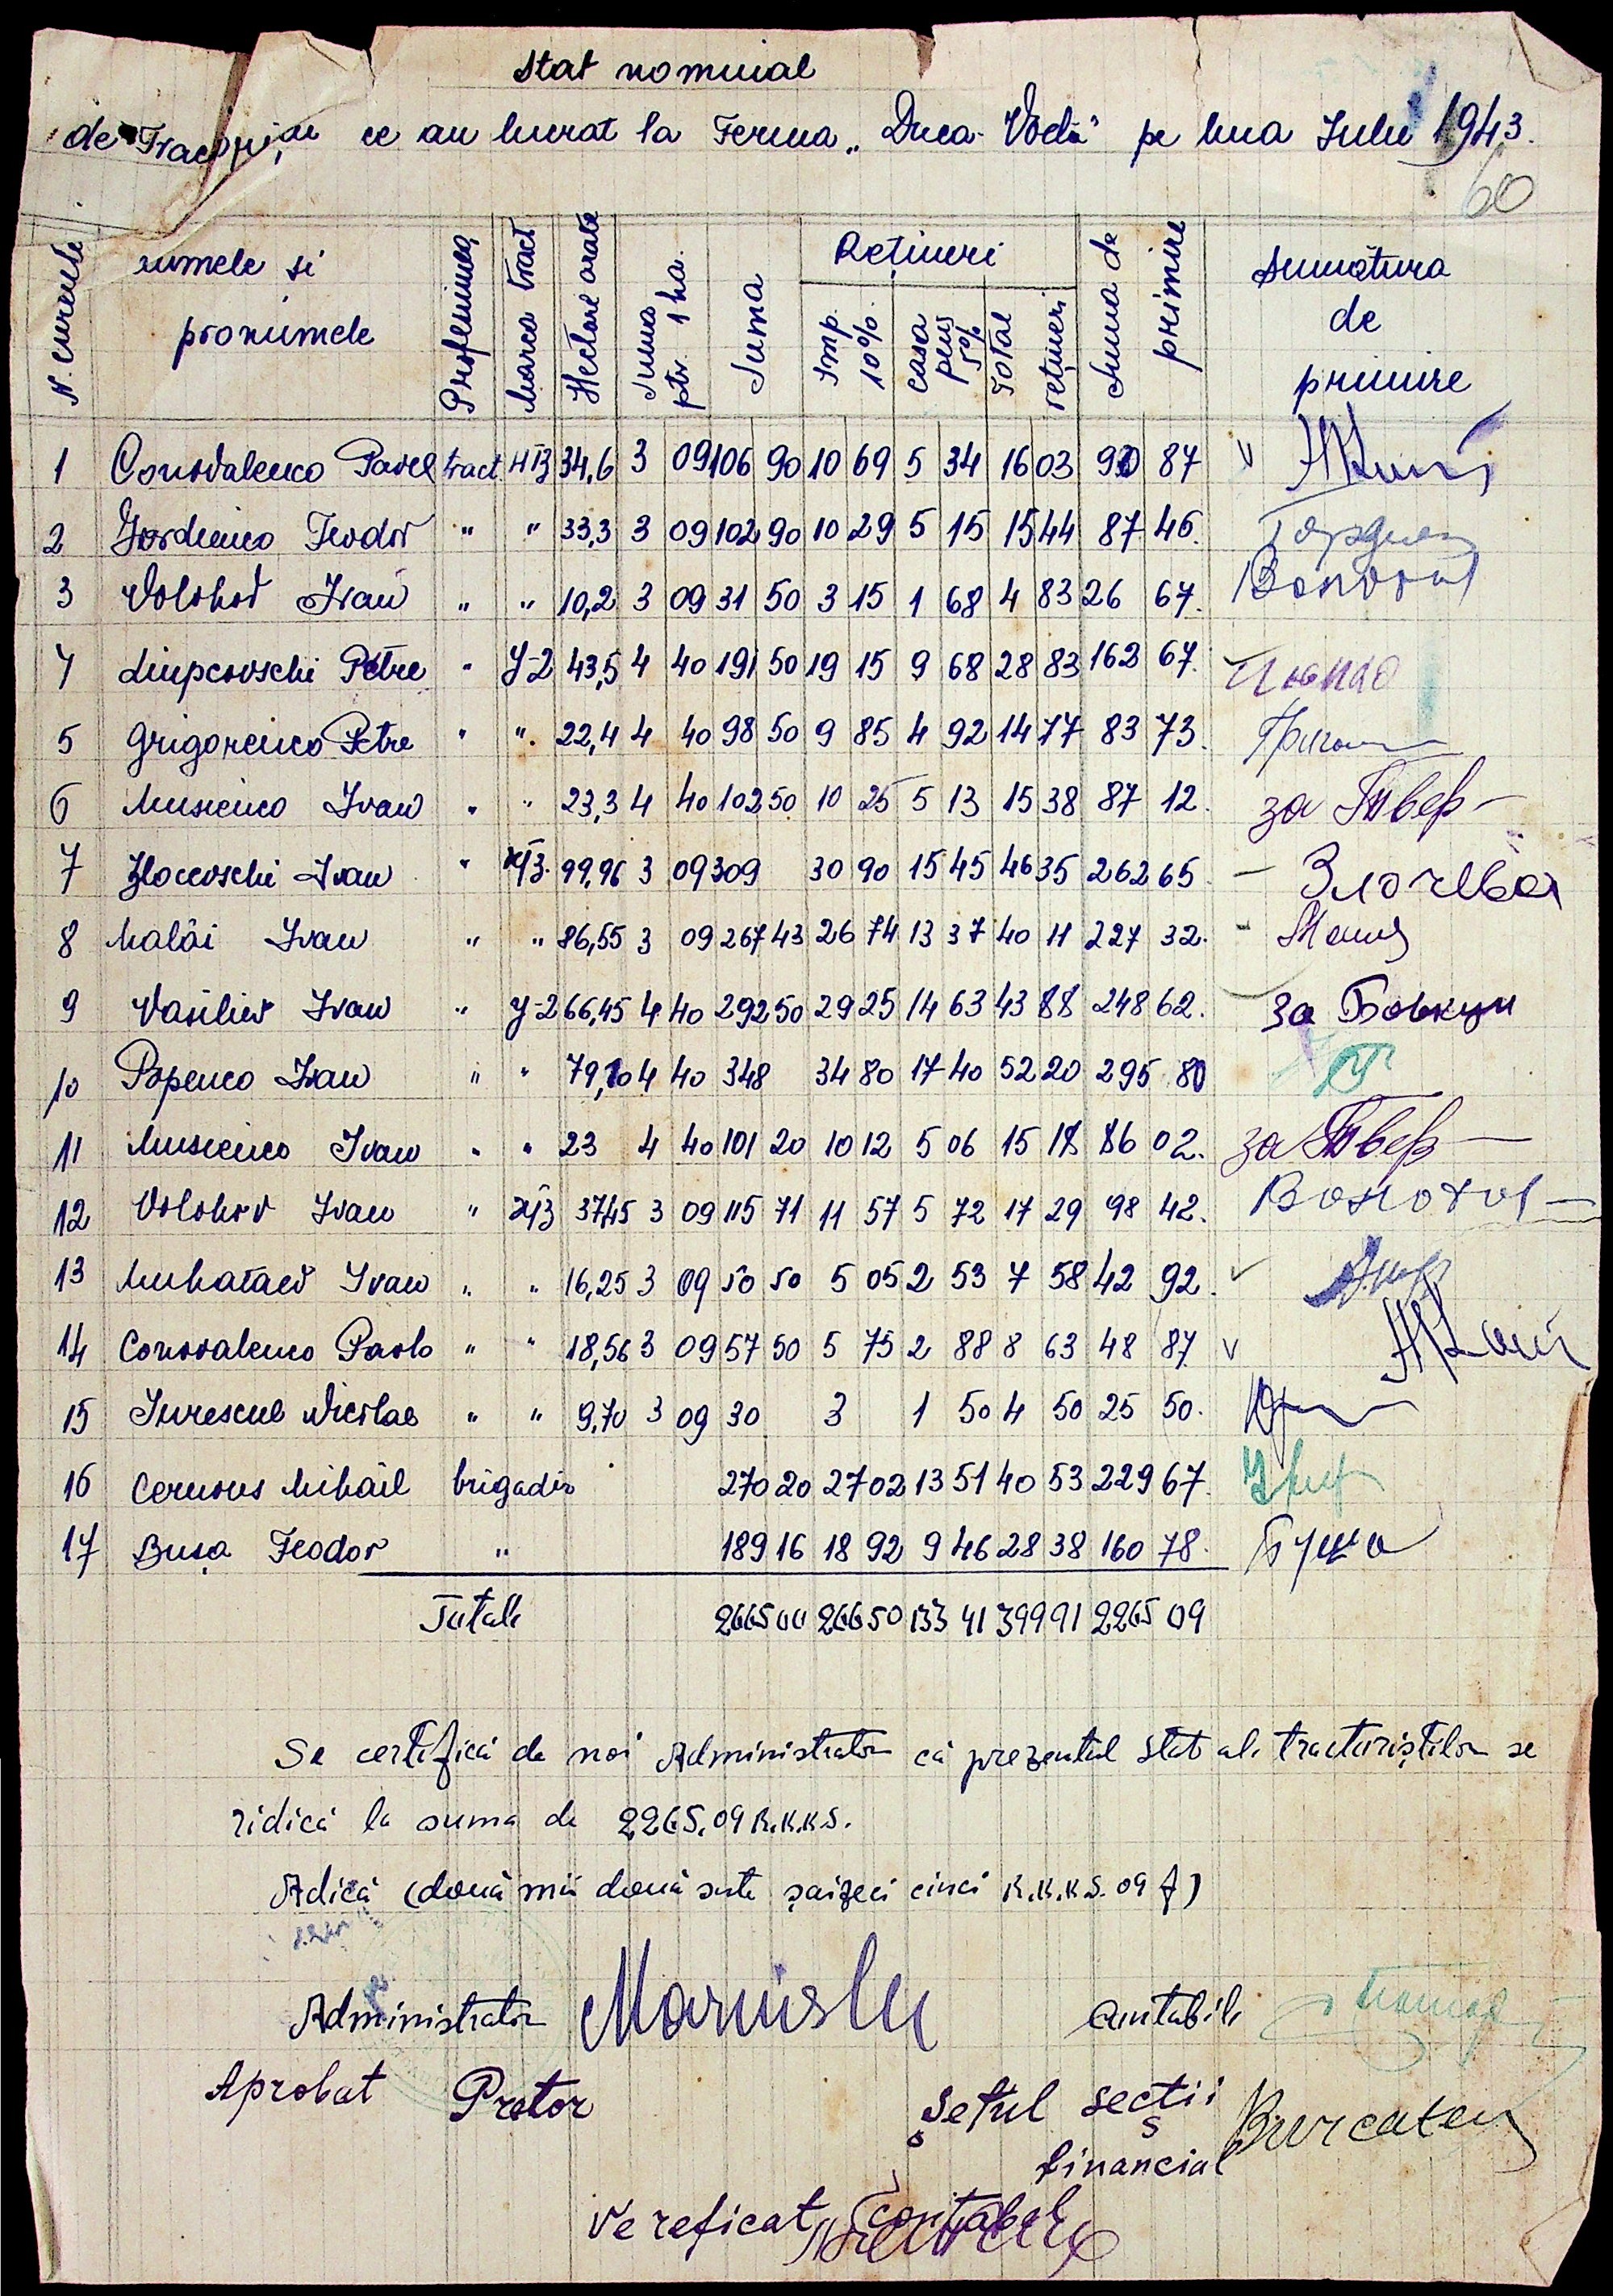 Stat nominal
de ce au lucrat la Ferma „Duca-Vodă” pe luna Iulie 1943.
60
N. curente numele si pronumele Profesiunea Marca tract Hectare arate Suma ptr. 1 ha. Suma Rețineri Imp. 10% casa pens 5% Total rețineri Suma de primire Semnătura de primire
1 Conovalenco Pavel tract. HTZ 34,6 3 09 106 90 10 69 5 34 16 03 90 87 v
2 Gordienco Teodor " " 33,3 3 09 102 90 10 29 5 15 15 44 87 46.
3 Volohov Ivan " " 10,2 3 09 31 50 3 15 1 68 4 83 26 67.
4 Petre " У-2 43,5 4 40 191 50 19 15 9 68 28 83 162 67.
5 Grigorenco Petre " ". 22,4 4 40 98 50 9 85 4 92 14 77 83 73.
6 Musienco Ivan " " 23,3 4 40 102 50 10 25 5 13 15 38 87 12. за Твер-
7 Zlocevschi Ivan " 99,96 3 09 309 30 90 15 45 46 35 262 65 - Злочевск
8 Malâi Ivan " " 86,55 3 09 267 43 26 74 13 37 40 11 227 32. -
9 Vasiliev Ivan " У-2 66,45 4 40 292 50 29 25 14 63 43 88 248 62. за Бовкун
10 Popenco Ivan " " 79,10 4 40 348 34 80 17 40 52 20 295 80
11 Musienco Ivan " " 23 4 40 101 20 10 12 5 06 15 18 86 02. за Твер-
12 Volohov Ivan " 3745 3 09 115 71 11 57 5 72 17 29 98 42. Волохов
13 Ivan " " 16,25 3 09 50 50 5 05 2 53 7 58 42 92.
14 Conovalenco Pavlo " " 18,56 3 09 57 50 5 75 2 88 8 63 48 87 v
15 Iurescul Nicolae " " 9,70 3 09 30 3 1 50 4 50 25 50.
16 Mihail brigadir 270 20 27 02 13 51 40 53 229 67.
17 Bușa Feodor " 189 16 18 92 9 46 28 38 160 78. Буша
Totale 2665 00 266 50 133 41 399 91 2265 09
Se certifică de noi Administrator că prezentul Stat al. tractoriștilor se
ridică la suma de 2265,09 R.K.K.S.
Adică (două mii două sute șaizeci cinci R.K.K.S. 09 f)
Administrator contabile
Aprobat Pretor Șeful secții
financial
Vereficat contabel